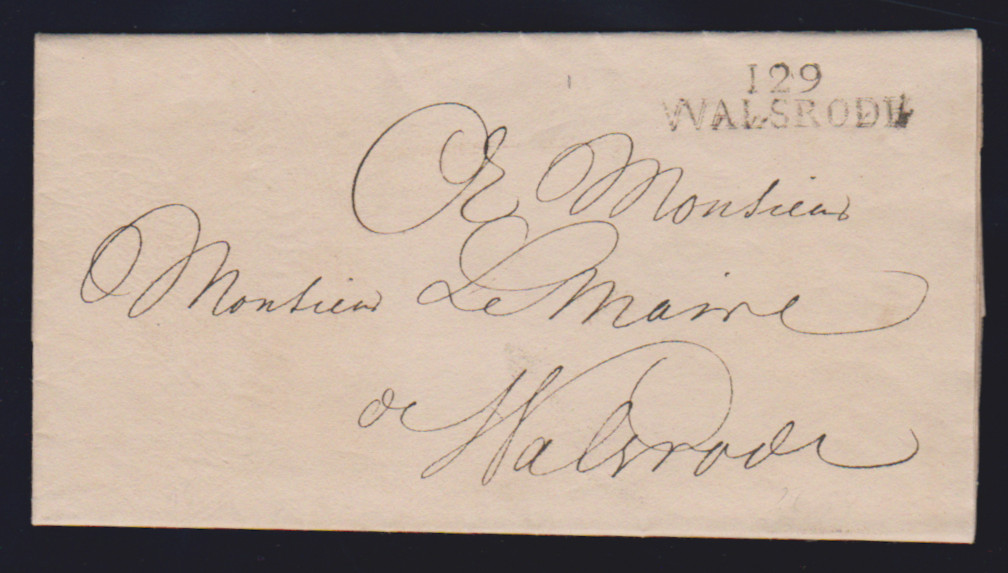 129
WALSRODE
A Monsieur
Monsieur Le Maire
de Walsrode